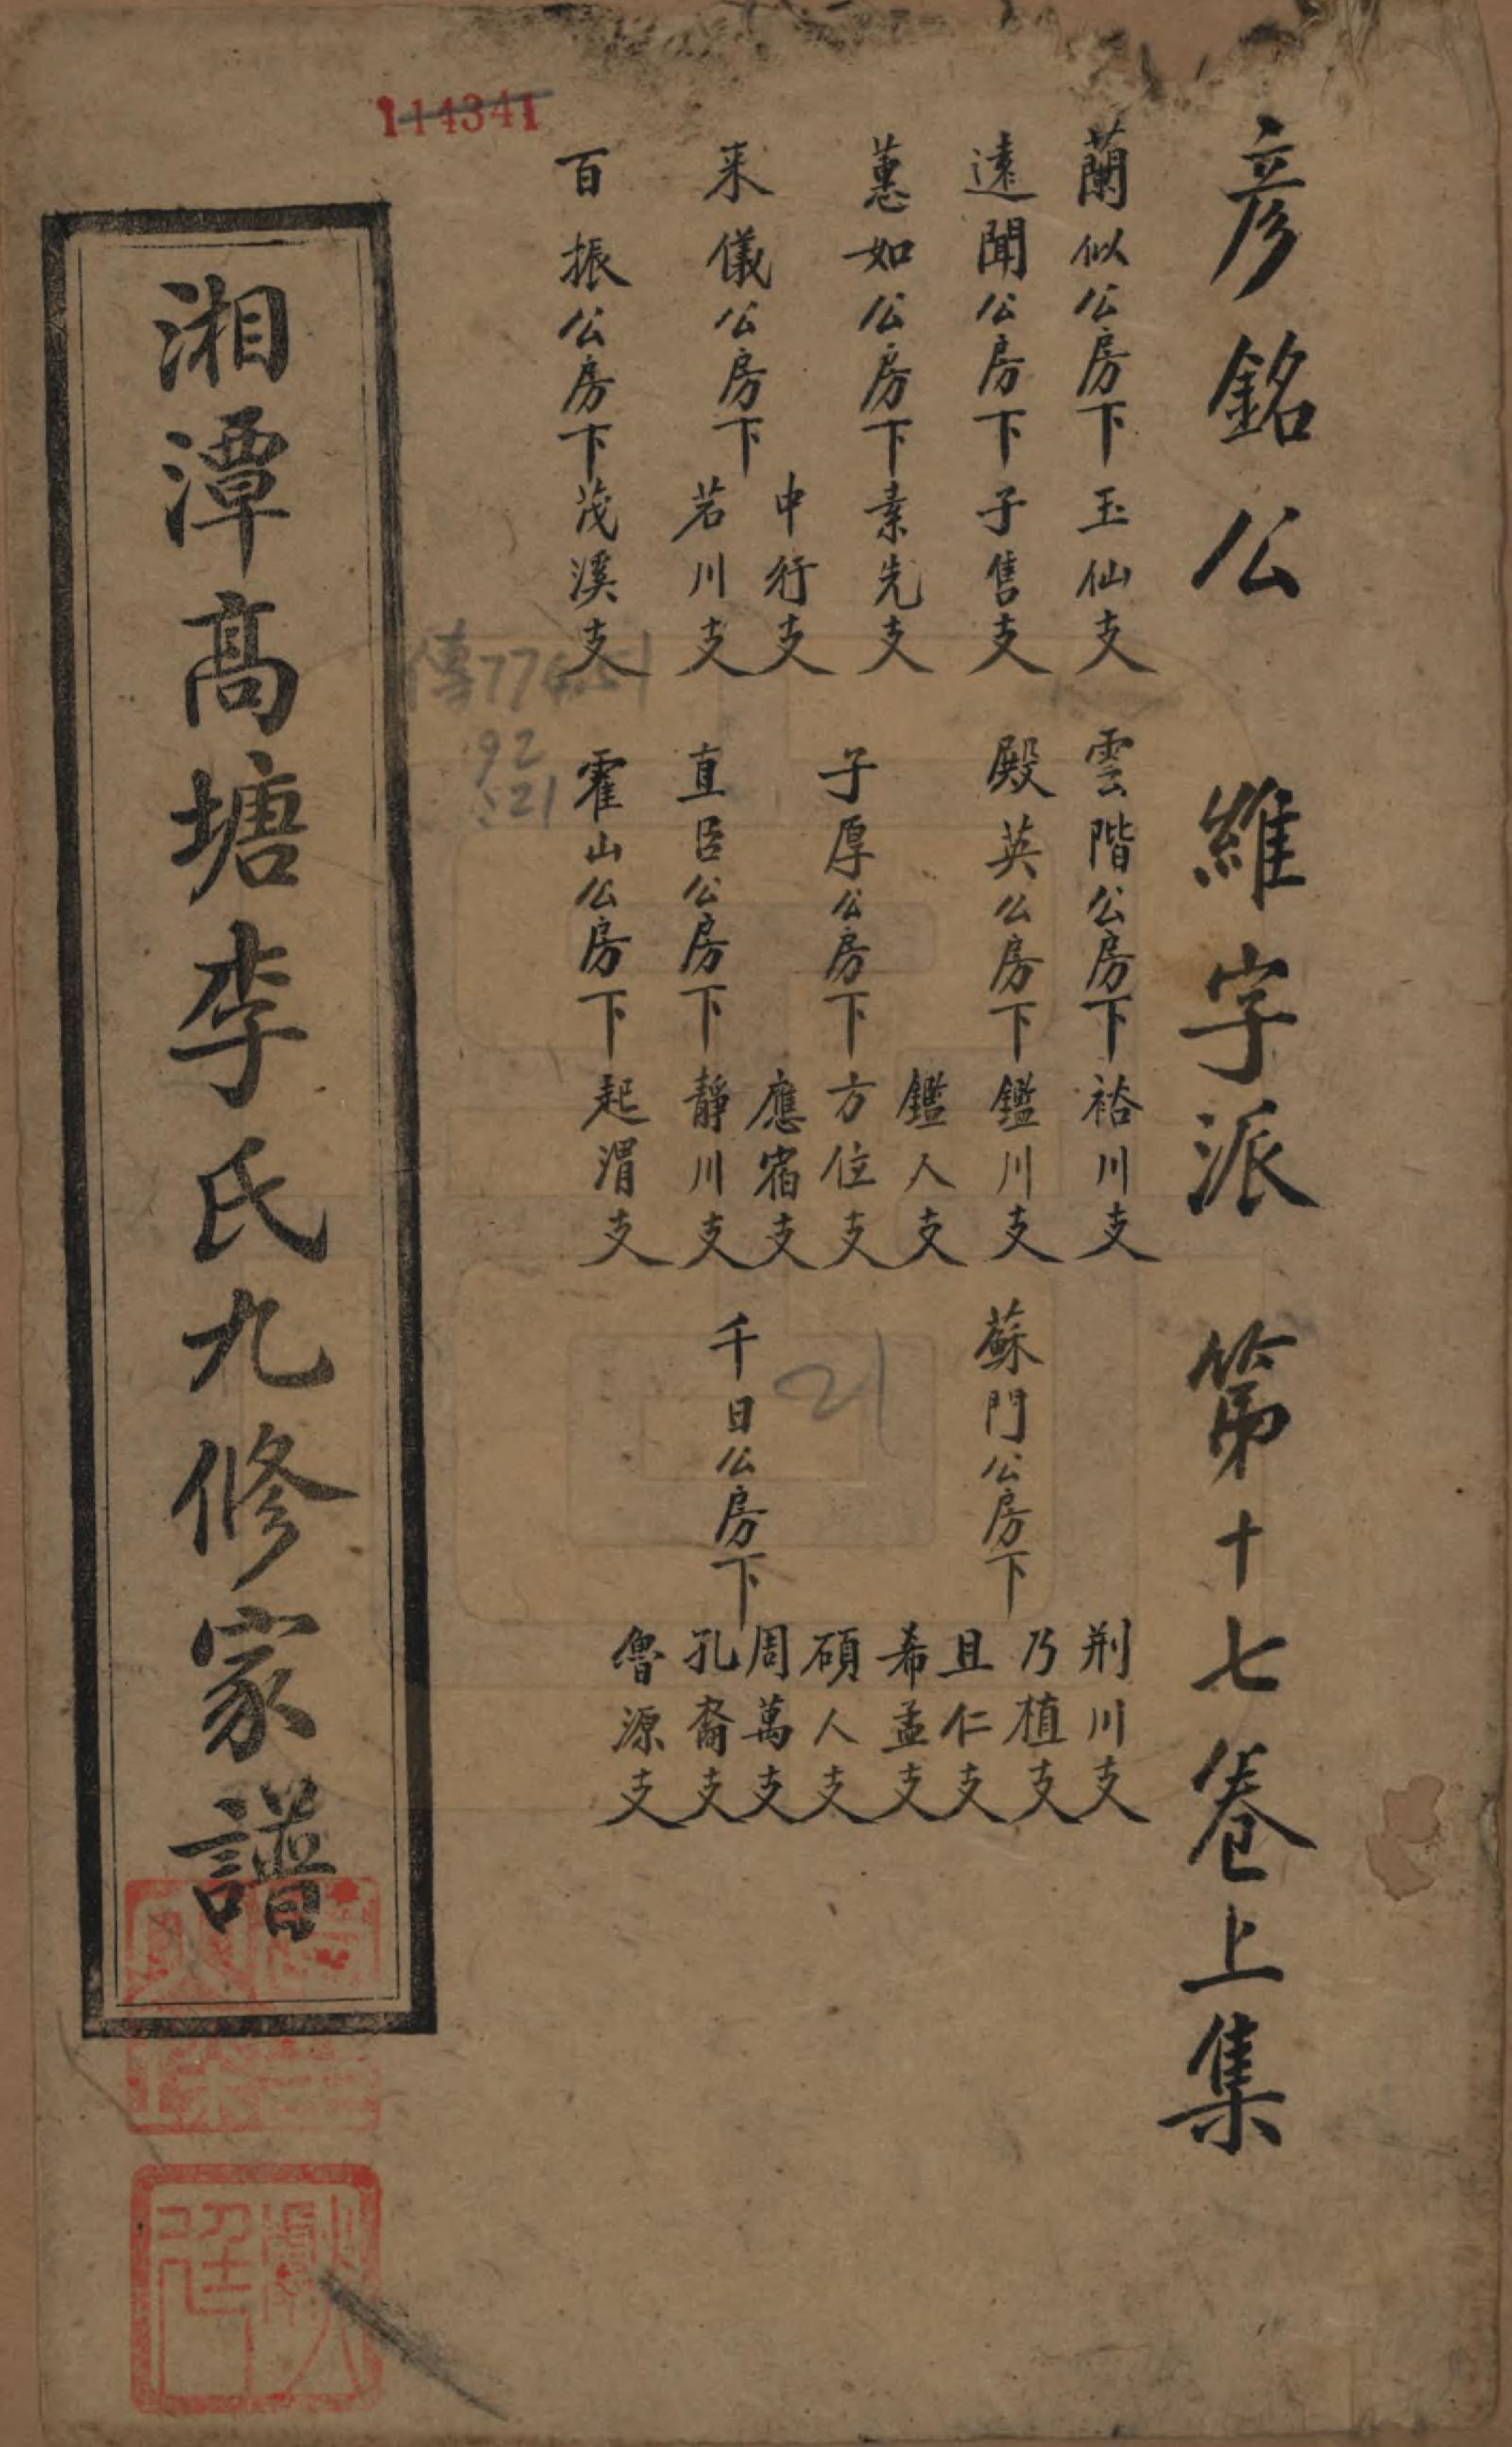 彦銘公　維字派　第十七卷上集
蘭似公房下玉仙支
遠聞公房下子售支
蕙如公房下素先支
来儀公房下中行支
若川支
百振公房下茂溪支
雲階公房下裕川支
殿英公房下鑑川支
鑑人支
子厚公房下方位支
應宿支
直臣公房下靜川支
霍山公房下起渭支
蘇門公房下
千日公房下
荆川支
乃植支
且仁支
希孟支
碩人支
周萬支
孔裔支
魯源支
湘潭高塘李氏九修家譜
114341
92
521
21